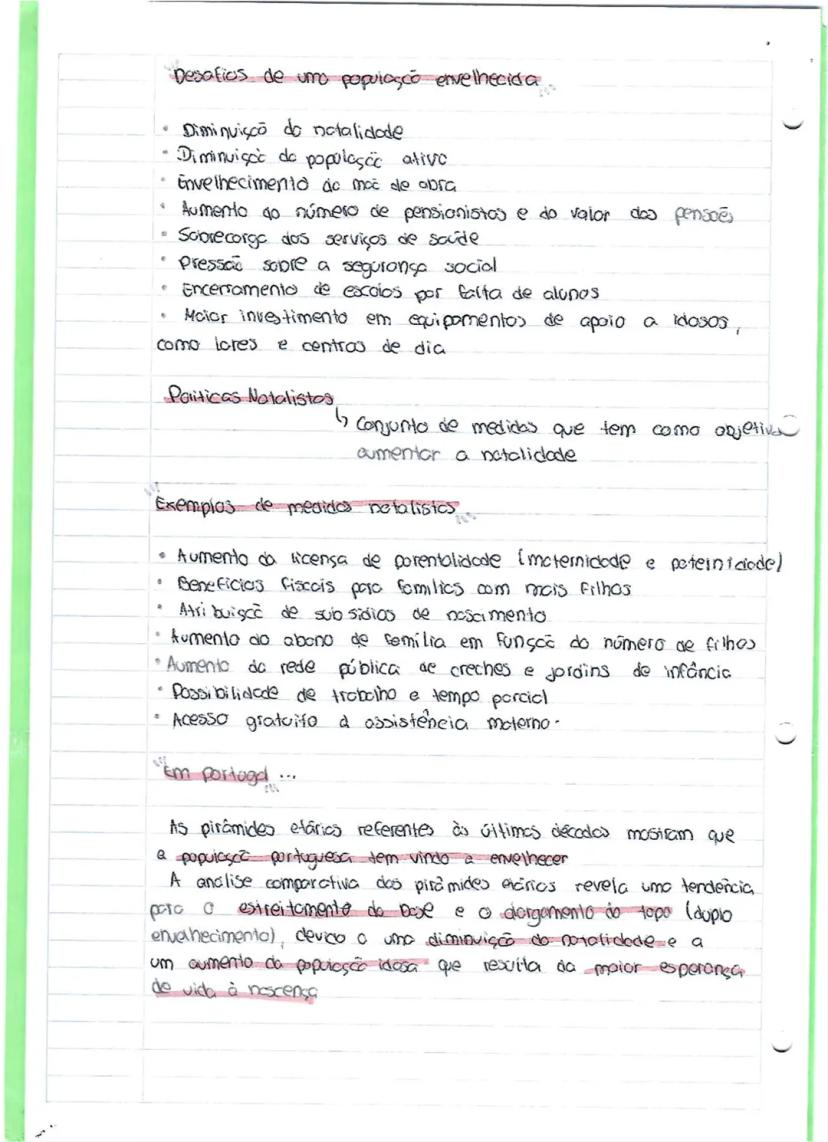 Desafios de uma população envelhecida
• Diminuição da natalidade
• Diminuição da população ativa
• Envelhecimento da mão de obra
• Aumento do número de pensionistas e do valor das pensões
• Sobrecarga dos serviços de saúde
• Pressão sobre a segurança social
• Encerramento de escolas por falta de alunos
• Maior investimento em equipamentos de apoio a idosos,
como lares e centros de dia
Politicas Natalistas
↳ Conjunto de medidas que tem como objetivo
aumentar a natalidade
Exemplos de medidas natalistas
• Aumento da licensa de parentalidade (maternidade e paternidade)
• Beneficios fiscais para famílias com mais filhos
• Atribuição de subsidios de nascimento
• Aumento do abono de família em função do número de filhos
• Aumento da rede pública de creches e jardins de infância
• Possibilidade de trabalho a tempo parcial
• Acesso gratuito à assistência materno-
"Em Portugal ...
As pirâmides etárias referentes às últimas décadas mostram que
a população portuguesa tem vindo a envelhecer
A análise comparativa das pirâmides etárias revela uma tendência
para o estreitamento da base e o alargamento do topo (duplo
envelhecimento), devido a uma diminuição da natalidade e a
um aumento da população idosa que resulta da maior esperança
de vida à nascença